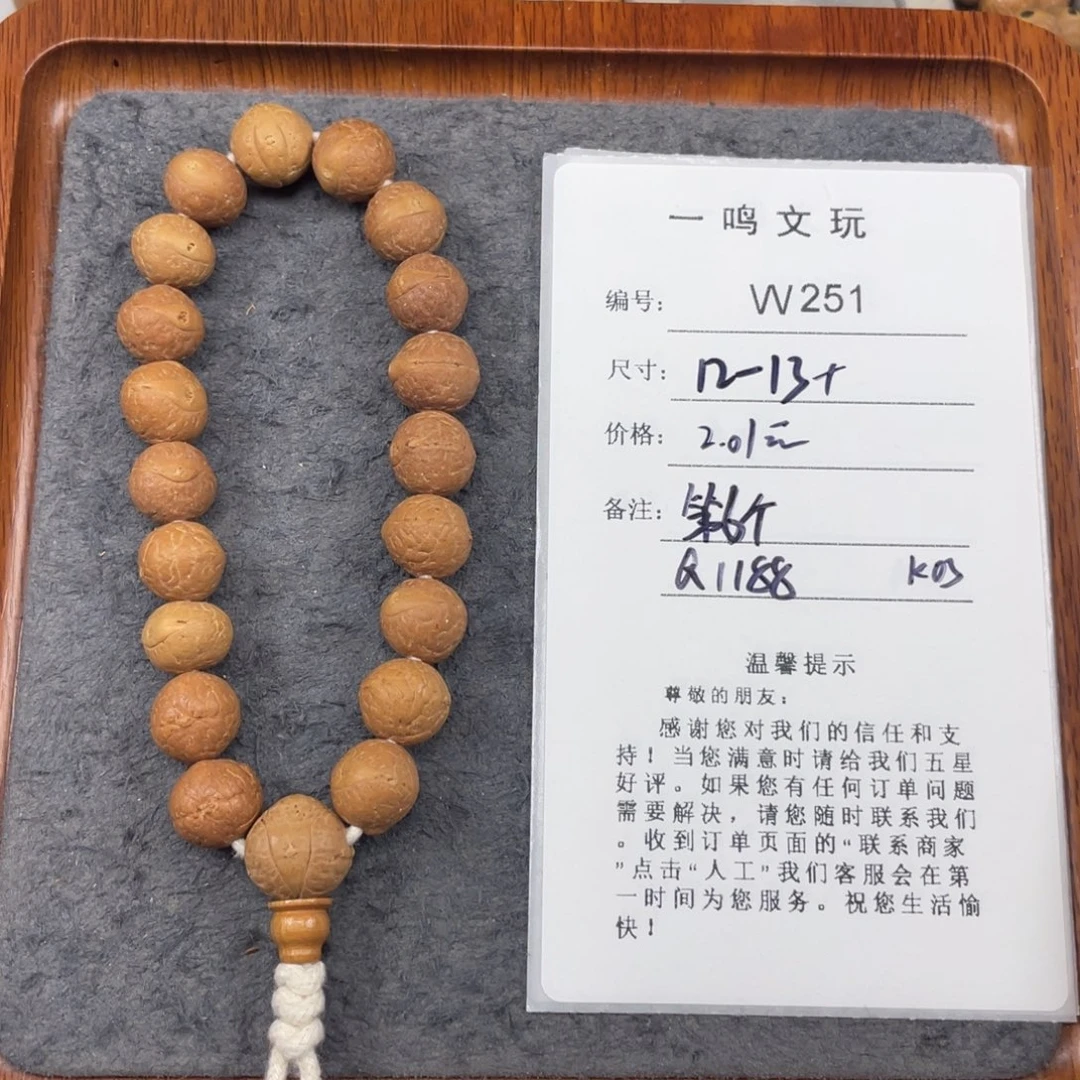 一鸣文玩
编号: W251
尺寸: 12-13+
价格: 2.01元
备注: 第6个
Q1188 K03
温馨提示
尊敬的朋友:
感谢您对我们的信任和支
持!当您满意时请给我们五星
好评。如果您有任何订单问题
需要解决,请您随时联系我们
。收到订单页面的“联系商家
”点击“人工”我们客服会在第
一时间为您服务。祝您生活愉
快!